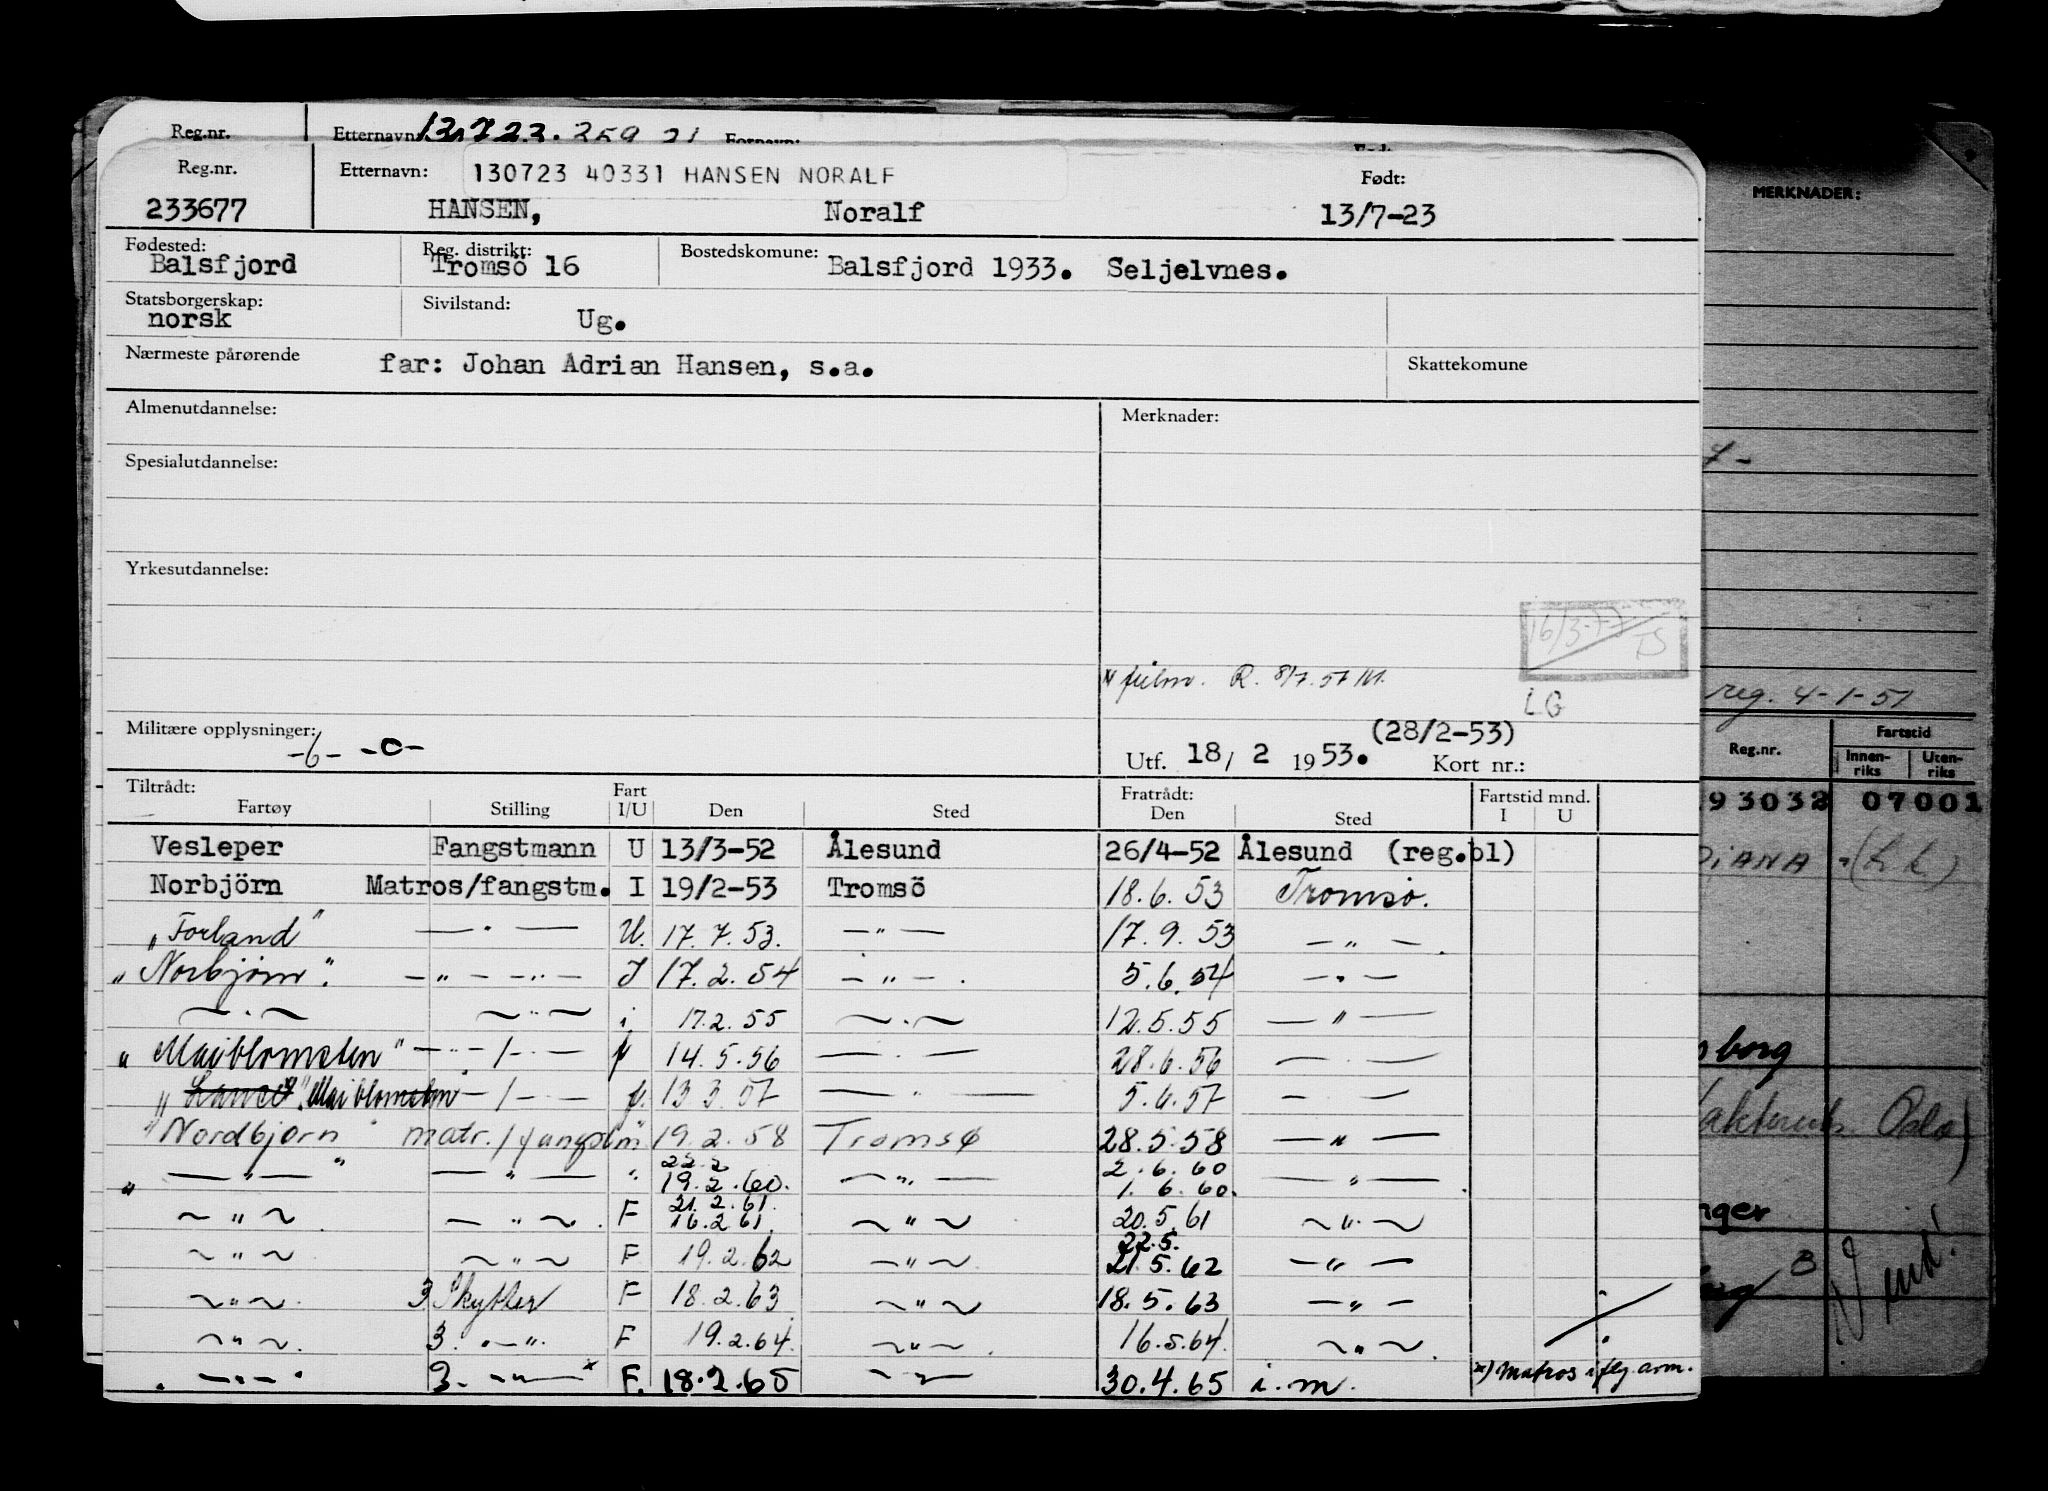 Reg.nr. Etternavn: 130723.
Reg.nr. Etternavn: 130723 40331 HANSEN NORALF Født:
233677 HANSEN, Noralf 13/7-23
Fødested: Reg. distrikt: Bostedskomune:
Balsfjord Tromsö 16 Balsfjord 1933. Seljelvnes.
Statsborgerskap: Sivilstand:
norsk Ug.
Nærmeste pårørende far: Johan Adrian Hansen, s.a. Skattekomune
Almenutdannelse: Merknader:
Spesialutdannelse:
Yrkesutdannelse:
16/3-77
TS
film. R. 8/7.57
LG
Militære opplysninger: -6- -o-
(28/2-53)
Utf. 18/ 2 1953. Kort nr.:
Tiltrådt: Fart Fratrådt: Fartstid mnd.
Fartøy Stilling I/U Den Sted Den Sted I U
Vesleper Fangstmann U 13/3-52 Ålesund 26/4-52 Ålesund (reg.bl)
Norbjörn Matros/fangstm. I 19/2-53 Tromsö 18.6.53 Tromsø.
"Forland" — " — U. 17.7.53. — " — 17.9.53 — " —.
"Norbjørn". — " — — " — I 17.2.54 — " —. 5.6.54 — " —
— " — — " — i 17.2.55 — " — 12.5.55 — " —
"Maiblomsten" — " — / — " — 14.5.56 — " — 28.6.56 — " —
"Maiblomsten — / — " — 13 3 57 — " — 5.6.57 — " —
"Nordbjørn" matr./fangstm 19.2.58 Tromsø 28.5.58 — " —
22.2 2.6.60
" — " — " — " — " 19.2.60. — " — 1.6.60. — " —.
21.2.61.
— " — — " —. F 16.2.61 — " — 20.5.61 — " —
22.5.
— " — — " — F 19.2.62 — " — 21.5.62 — " —
— " —. 3 Skytter F 18.2.63 — " — 18.5.63 — " —
— " —. 3. — " —. F 19.2.64. — " —. 16.5.64. — " —.
— " — 3. — " — x F. 18.2.65 — " — 30.4.65 i.m. x) Matros i flg. arm.
MERKNADER:
7-
reg. 4-1-51
Reg.nr. Fartstid
Innen-riks Uten-riks
93032 07001
DIANA
borg
Oslo)
nger
8
Vend!